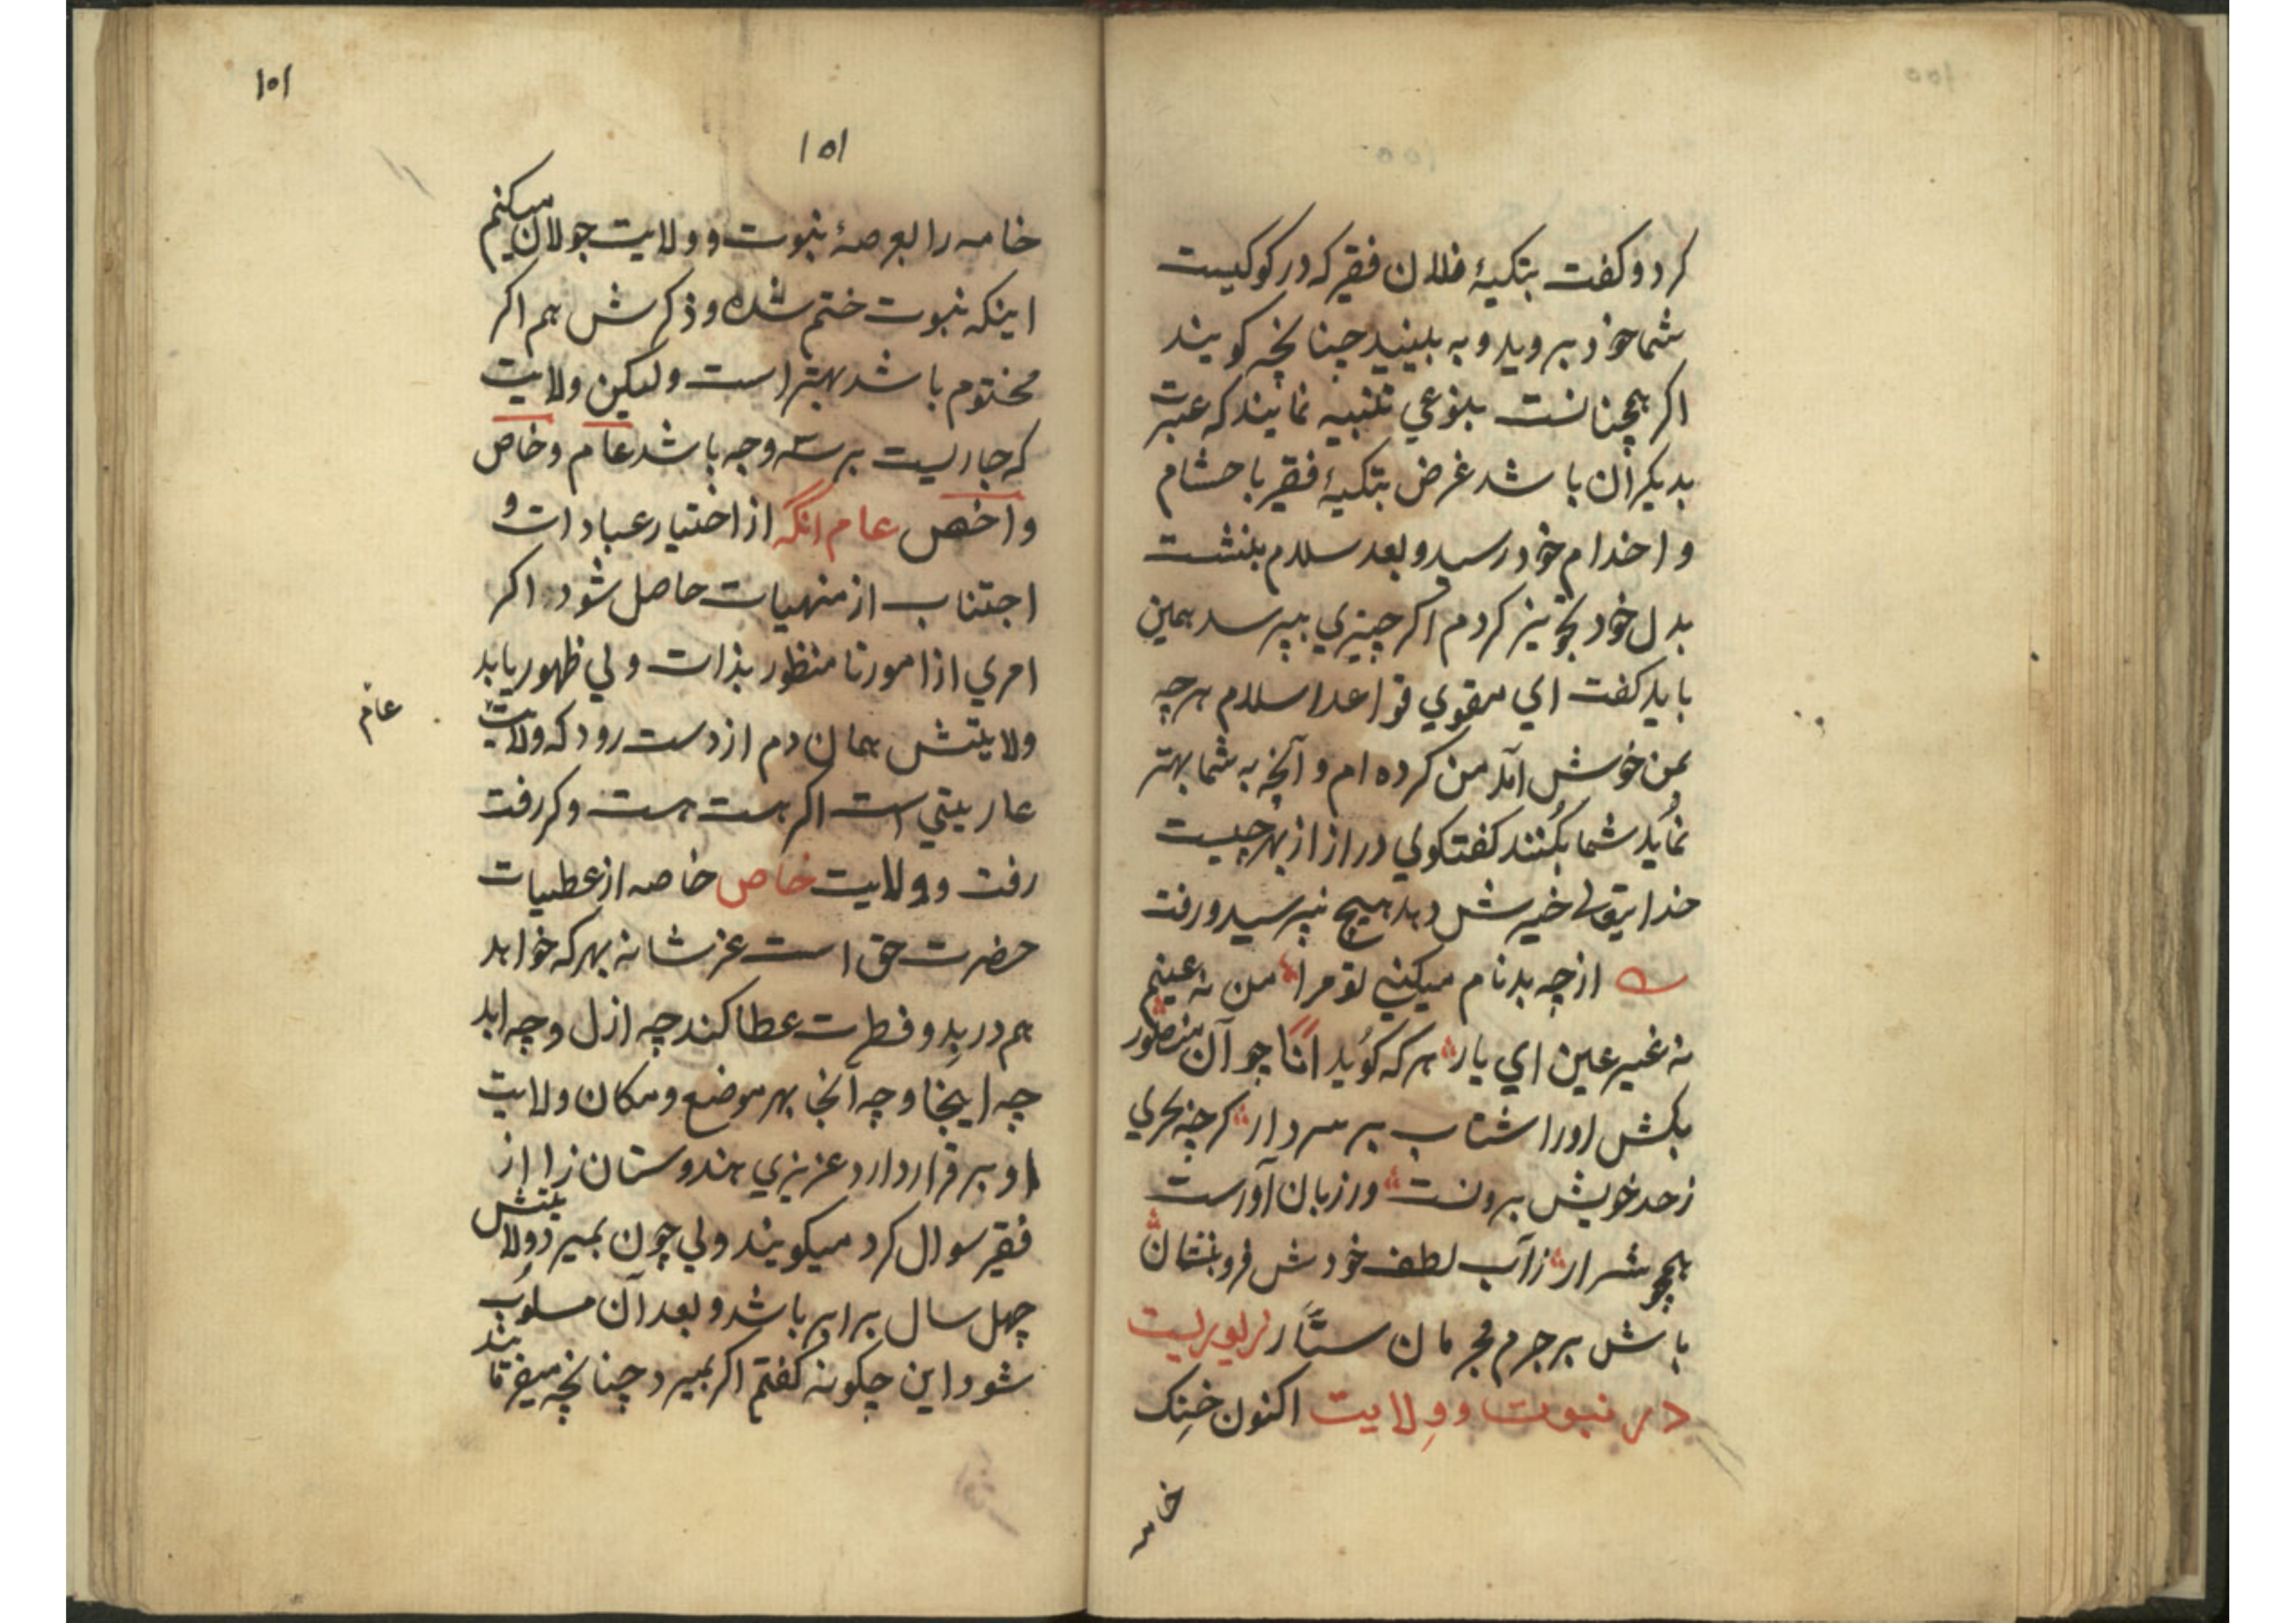 کرد و کفت بتکیۀ فلان فقیر که در کوکیست
شما خود بروید و به بینید چنانچه کویند
اکر همچنانست بنوعي تنبیه نمایند که عبرت
بدیکران باشد غرض بتکیۀ فقیر با حشام
و اخدام خود رسید و بعد سلام بنشست
بدل خود تجویز کردم اکر چیزي بپرسد همین
باید کفت اي مقوي قواعد اسلام هرچه
بمن خوش آمد من کرده ام و آنچه به شما بهتر
نماید شما بکنند کفتکوئي دراز از بهر چیست
خدایتعالی خیرش دهد هیچ نپرسید و رفت
از چه بدنام میکني تو مرا من نه عینم
نه غیر عین اي یار هر که کوید انا چو آن منصور
بکش اورا شتاب بر سر دار کرچه
زحد خویش برونست ور زبان آورست
همچو شرار زآب لطف خودش فرو بنشان
باش بر جرم مجرمان ستّار
در نبوت و وِلایت اکنون خِنک
خامه
101
101
خامه را بعرصۀ نبوت و ولایت جولان میکنم
اینکه نبوت ختم شده و ذکرش هم اکر
مختوم باشد بهتر است ولیکن ولایت
که جاریست بر سه وجه باشد عام و خاص
و اخص عام انکه از اختیار عبادات و
اجتناب از منهیات حاصل شود اکر
امري از امور نا منظور بذات ولي ظهور یابد
ولایتش همان دم از دست رود که ولایت
عاریتي است اکر هست هست وکر رفت
رفت و ولایت خاص خاصه از عطیات
حضرت حق است عز شانه بهر که خواهد
هم در بدو فطرت عطا کند چه ازل و چه ابد
چه اینجا و چه آنجا بهر موضع و مکان ولایت
او برقرار دارد عزیزي هندوستان زا از
فقیر سوال کرد میکویند ولي چون بمیرد ولایتش
چهل سال برابر باشد و بعد آن مسلوب
شود این چکونه کفتم اکر بمیرد چنانچه میفرمایند
عام